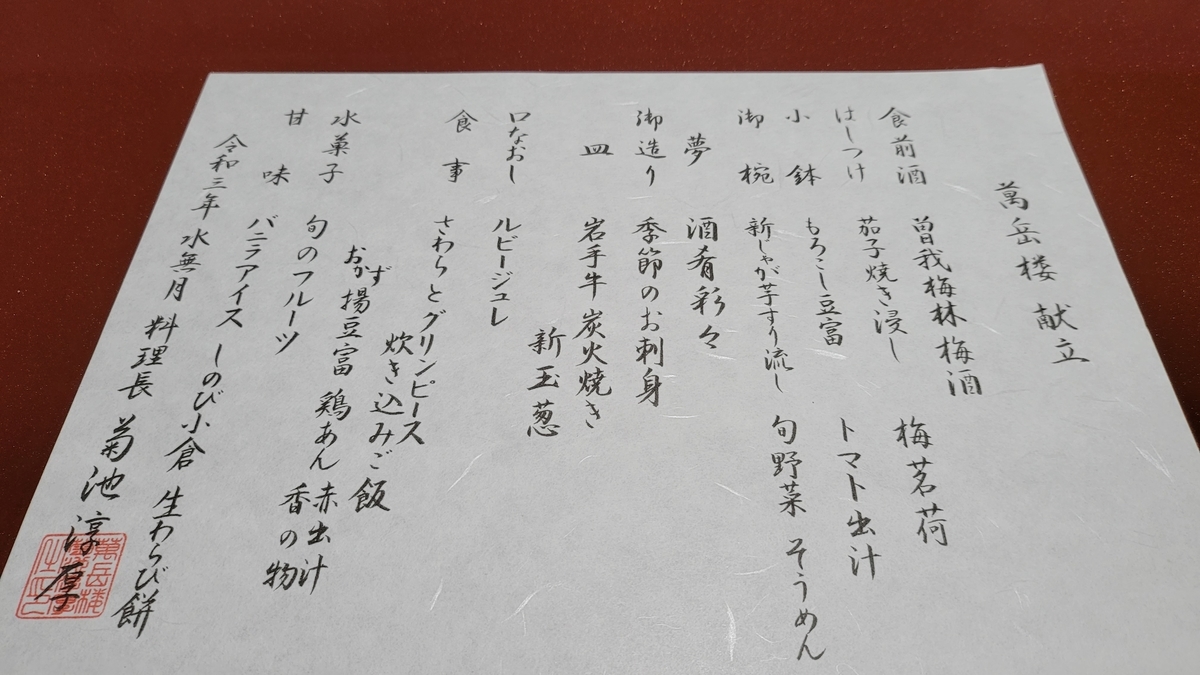 萬岳楼 献立
食前酒 曽我梅林梅酒
はしつけ 茄子焼き浸し 梅茗荷
小鉢 もろこし豆富 トマト出汁
御椀 新じゃが芋すり流し 旬野菜 そうめん
夢 酒肴彩々
御造り 季節のお刺身
皿 岩手牛炭火焼き
新玉葱
口なおし ルビージュレ
食事 さわらとグリンピース
炊き込みご飯
おかず 揚豆富 鶏あん 赤出汁
香の物
水菓子 旬のフルーツ
甘味 バニラアイス しのび小倉 生わらび餅
令和三年 水無月 料理長 菊池淳厚